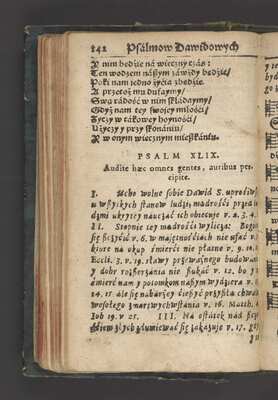 142 Psalmow Dawidowych
Y nim będzie ná wieczny czás:
Ten wodzem nászym záwżdy będzie/
Poki nam iedno życia zbędzie.
A przetoż mu dufaymy/
Swą rádość w nim składaymy/
Gdyż nam tey swoiey miłości/
Zyczy w tákowey hoyności/
Użyczy y przy skonániu/
Y w onym wiecznym mieszkániu.
PSALM XLIX.
Audite hæc omnes gentes, auribus per-
cipite.
I. Ucho wolne sobie Dawid S. uprosiwszy
u wszystkich stanow ludzi, mądrości przed
dźmi ukrytey náuczáć ich obiecuie v. 2. 3. 4.
II. Stopnie tey mądrości wylicza:
się szczyćić v. 6. w máiętnościách nie ufáć v.
ktore ná okup śmierći nie płátne v. 9. 10.
Eccli. 3. v. 19. sławy przeważnego budowania
y dobr rozszerzania nie szukáć v. 12. bo y
śmierć nam y potomkom nászym wydziera v.
14. 15. ale się nabárziey ćieszyć przyszłą chwałą
wesołego zmartwychwstánia v. 16. Matth.
Iob 19. v. 25. III. Ná ostátek nád szczę-
śćiem złych zdumiewáć się zákázuie v. 17. gdy